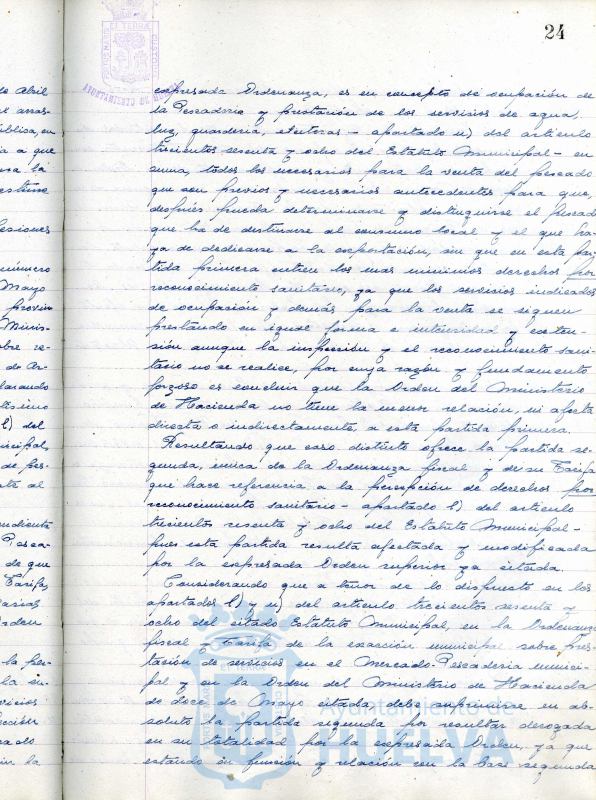 24
expresada Ordenanza, es en concepto de ocupación de
la Pescadería y prestación de los servicios de agua,
luz, guardería, etcétera - apartado u) del artículo
trecientos sesenta y ocho del Estatuto Municipal - en
suma, todos los necesarios para la venta del pescado
que son previos y necesarios antecedentes para que,
después pueda determinarse y distinguirse el pescado
que ha de destinarse al consumo local y el que ha-
ya de dedicarse a la exportación, sin que en esta par-
tida primera entren los mas minimos derechos por
reconocimiento sanitario, ya que los servicios indicados
de ocupación y demás para la venta se siguen
prestando en igual forma e intensidad y exten-
sión aunque la inspección y el reconocimiento sani-
tario no se realice, por cuya razón y fundamento
forzoso es concluir que la Orden del Ministerio
de Hacienda no tiene la menor relación, ni afecta
directa o indirectamente a esta partida primera.
Resultando que caso distinto ofrece la partida se-
gunda, única de la Ordenanza fiscal y de su Tarifa
que hace referencia a la percepción de derechos por
reconocimiento sanitario - apartado l) del artículo
trecientos sesenta y ocho del Estatuto Municipal -
pues esta partida resulta afectada y modificada
por la expresada Orden superior ya citada.
Considerando que a tenor de lo dispuesto en los
apartados l) y u) del artículo trecientos sesenta y
ocho del citado Estatuto Municipal, en la Ordenanza
fiscal y Tarifa de la exacción municipal sobre pres-
tación de servicios en el Mercado-Pescadería munici-
pal y en la Orden del Ministerio de Hacienda
de doce de Mayo citada, debe suprimirse en ab-
soluto la partida segunda por resultar derogada
en su totalidad por la expresada Orden, ya que
estando en función y relación con la base segunda
de Abril
ública, en
a que
esiones
número
Mayo
provin
Minis-
bre re-
de Ar-
larando
l) del
icipal,
de pes-
te al
ndiente
Pesca-
de que
Tarifa,
la per-
vicios
cción
Ayuntamiento de
HUELVA